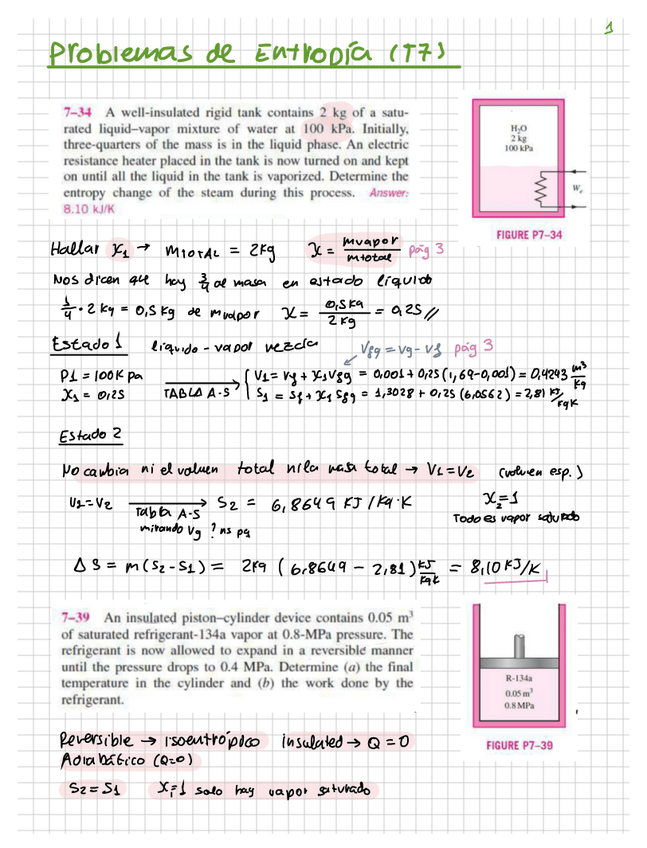 1
Problemas de Entropía (T7)
7–34 A well-insulated rigid tank contains 2 kg of a satu-
rated liquid–vapor mixture of water at 100 kPa. Initially,
three-quarters of the mass is in the liquid phase. An electric
resistance heater placed in the tank is now turned on and kept
on until all the liquid in the tank is vaporized. Determine the
entropy change of the steam during this process. Answer:
8.10 kJ/K
H₂O
2 kg
100 kPa
Wₑ
FIGURE P7–34
Hallar x₁ → mTOTAL = 2kg x = mvapor / mtotal pág 3
Nos dicen que hay 3/4 de masa en estado líquido
1/4 · 2 kg = 0,5 kg de mvapor x = 0,5kg / 2kg = 0,25 //
Estado 1 líquido - vapor mezcla Vfg = vg - vf pág 3
P1 = 100 K pa TABLA A-5 V1 = vf + x1 vfg = 0,001 + 0,25 (1,69 - 0,001) = 0,4243 m³/kg
X1 = 0,25 S1 = Sf + x1 Sfg = 1,3028 + 0,25 (6,0562) = 2,81 KJ/kgK
Estado 2
No cambia ni el volumen total ni la masa total → V1 = V2 (volumen esp.)
V1 = V2 Tabla A-5 S2 = 6,8649 KJ / Kg·K X₂ = 1
mirando Vg ? ns pq Todo es vapor saturado
ΔS = m (S2 - S1) = 2kg ( 6,8649 - 2,81 ) KJ/kgK = 8,10 KJ/K
7–39 An insulated piston–cylinder device contains 0.05 m³
of saturated refrigerant-134a vapor at 0.8-MPa pressure. The
refrigerant is now allowed to expand in a reversible manner
until the pressure drops to 0.4 MPa. Determine (a) the final
temperature in the cylinder and (b) the work done by the
refrigerant.
R-134a
0.05 m³
0.8 MPa
FIGURE P7–39
Reversible → isoentrópico insulated → Q = 0
Adiabático (Q=0)
S2 = S1 X₁ = 1 solo hay vapor saturado